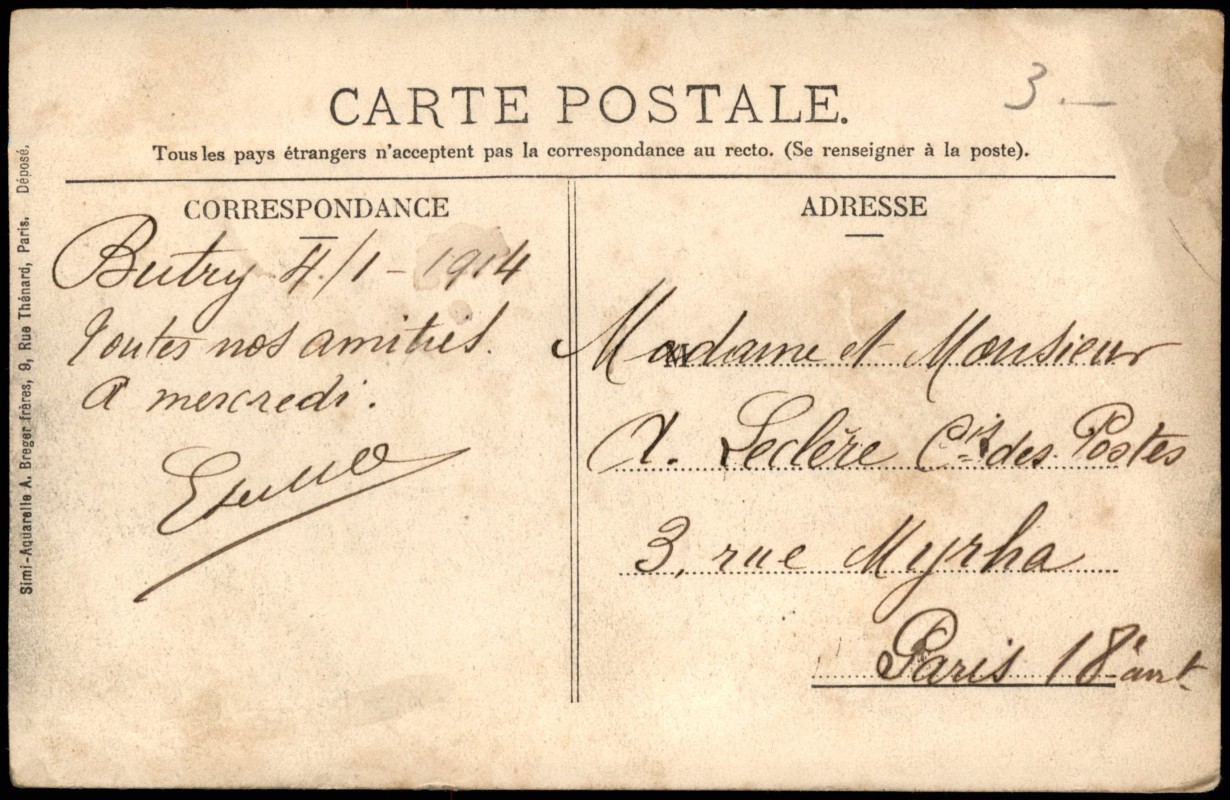 3.—
CARTE POSTALE.
Tous les pays étrangers n'acceptent pas la correspondance au recto. (Se renseigner à la poste).
CORRESPONDANCE
Butry 4/1 - 1914
Toutes nos amitiés.
A mercredi.
ADRESSE
Madame et Monsieur
A. Leclère Cis des Postes
3, rue Myrha
Paris 18è arrt
Simi-Aquarelle A. Breger frères, 9, Rue Thénard, Paris. Déposé.